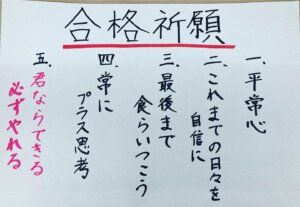 合格祈願
一、平常心
二、これまでの日々を
自信に
三、最後まで
食らいつこう
四、常に
プラス思考
五、君ならできる
必ずやれる